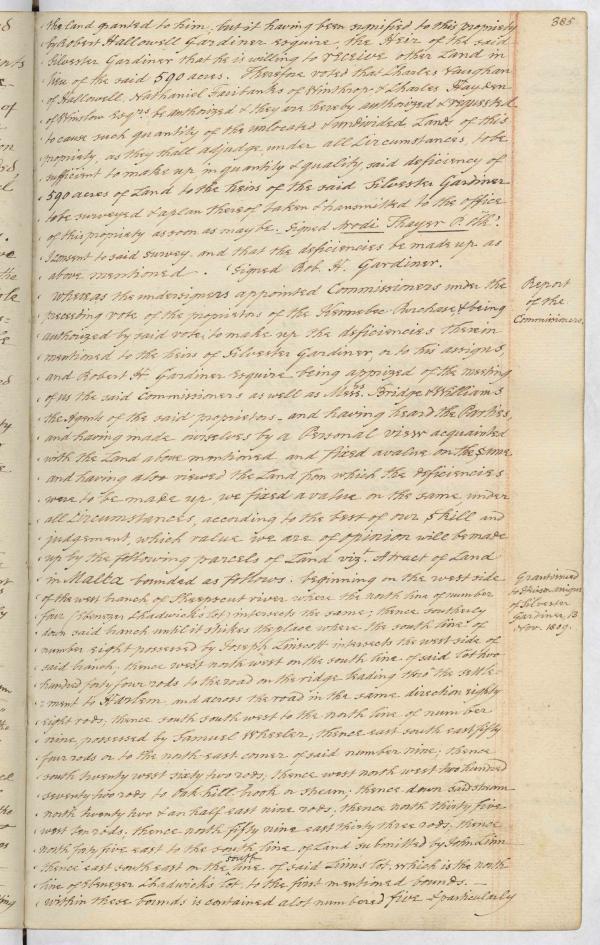 385
the land granted to him, but it having been signified to this propriety
by Robert Hallowell Gardiner esquire, the Heir of the said
Silvester Gardiner that he is willing to receive other Land in
lieu of the said 590 acres. Therefore voted that Charles Vaughan
of Hallowell, Nathaniel Fairbanks of Winthrop & Charles Hayden
of Winslow Esqrs be authorized & they are hereby authorized & requested
to cause such quantity of the unlocated & undivided Lands of this
propriety, as they shall adjudge, under all Circumstances, to be
sufficient to make up in quantity & quality, said deficiency of
590 acres of Land to the heirs of the said Silvester Gardiner
to be surveyed & a plan thereof taken & transmitted to the office
of this propriety as soon as may be. Signed Arodi Thayer P. Clk.
I consent to said survey, and that the deficiencies be made up as
above mentioned. Signed Rob. H. Gardiner.
Whereas the undersigners appointed Commissioners under the
preceding vote of the proprietors of the Kennebec Purchase, & being
authorized by said vote, to make up the deficiencies therein
mentioned to the heirs of Silvester Gardiner, or to his assigns,
and Robert H. Gardiner Esquire being apprized of the meeting
of us the said Commissioners as well as Messrs. Bridge & Williams
the Agents of the said proprietors, and having heard the Parties,
and having made ourselves by a Personal view acquainted
with the Land above mentioned and fixed a value on the same
and having also viewed the Land from which the deficiencies
were to be made up we fixed a value on the same under
all Circumstances, according to the best of our Skill and
judgement, which value we are of opinion will be made
up by the following parcels of Land vizt. A tract of Land
in Malta bounded as follows: beginning on the west side
of the west branch of Sheepscut river where the north line of number
four (Ebenezer Chadwick's lot) intersects the same; thence southerly
down said branch until it strikes the place where the south line of
number eight possessed by Joseph Linscott intersects the west side of
said branch, thence west north west on the south line of said lot two
hundred forty four rods to the road on the ridge leading thro' the settle-
-ment to Harlem, and across the road in the same direction eighty
eight rods; thence south south west to the north line of number
nine, possessed by Samuel Wheeler; thence east south east fifty
four rods or to the north east corner of said number nine; thence
south twenty west sixty two rods; thence west north west two hundred
seventy two rods to Oak hill brook or stream; thence down said stream
north twenty two & an half east nine rods; thence north thirty five
west ten rods, thence north fifty nine east thirty three rods, thence
north forty five east to the south line of Land submitted by John Linn
thence east south east on the south line of said Linns lot, which is the north
line of Ebenezer Chadwick's lot, to the first mentioned bounds.
Within these bounds is contained a lot numbered five & particularly
Report
of the
Commissioners.
Grantined
of Silvester
Gardiner, 13
Nov. 1809.